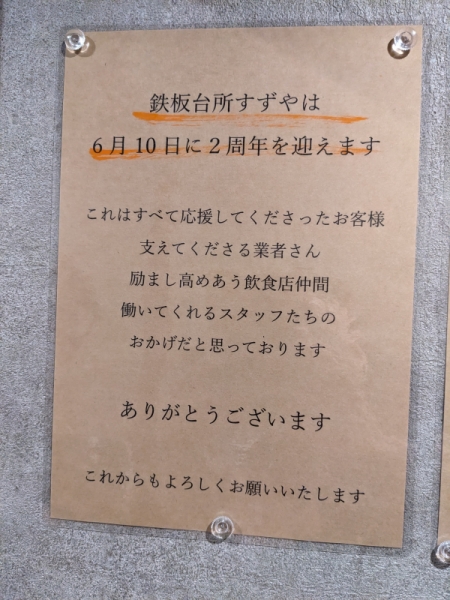 鉄板台所すずやは
6月10日に2周年を迎えます
これはすべて応援してくださったお客様
支えてくださる業者さん
励まし高めあう飲食店仲間
働いてくれるスタッフたちの
おかげだと思っております
ありがとうございます
これからもよろしくお願いいたします